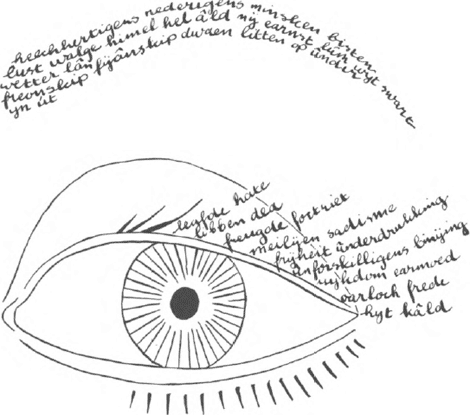 heechhertigens nederigens minsken bisten
lust walge himel hel âld nij earnst wyt swart
wetter lân
freonskip fijânskip dwaen litten op ûnder
yn út
leafde hate
libben dea
freugde fortriet
meilijen sadisme
frijheit ûnderdrukking
ûnforskilligens binijing
rykdom earmoed
oarloch frede
hyt kâld